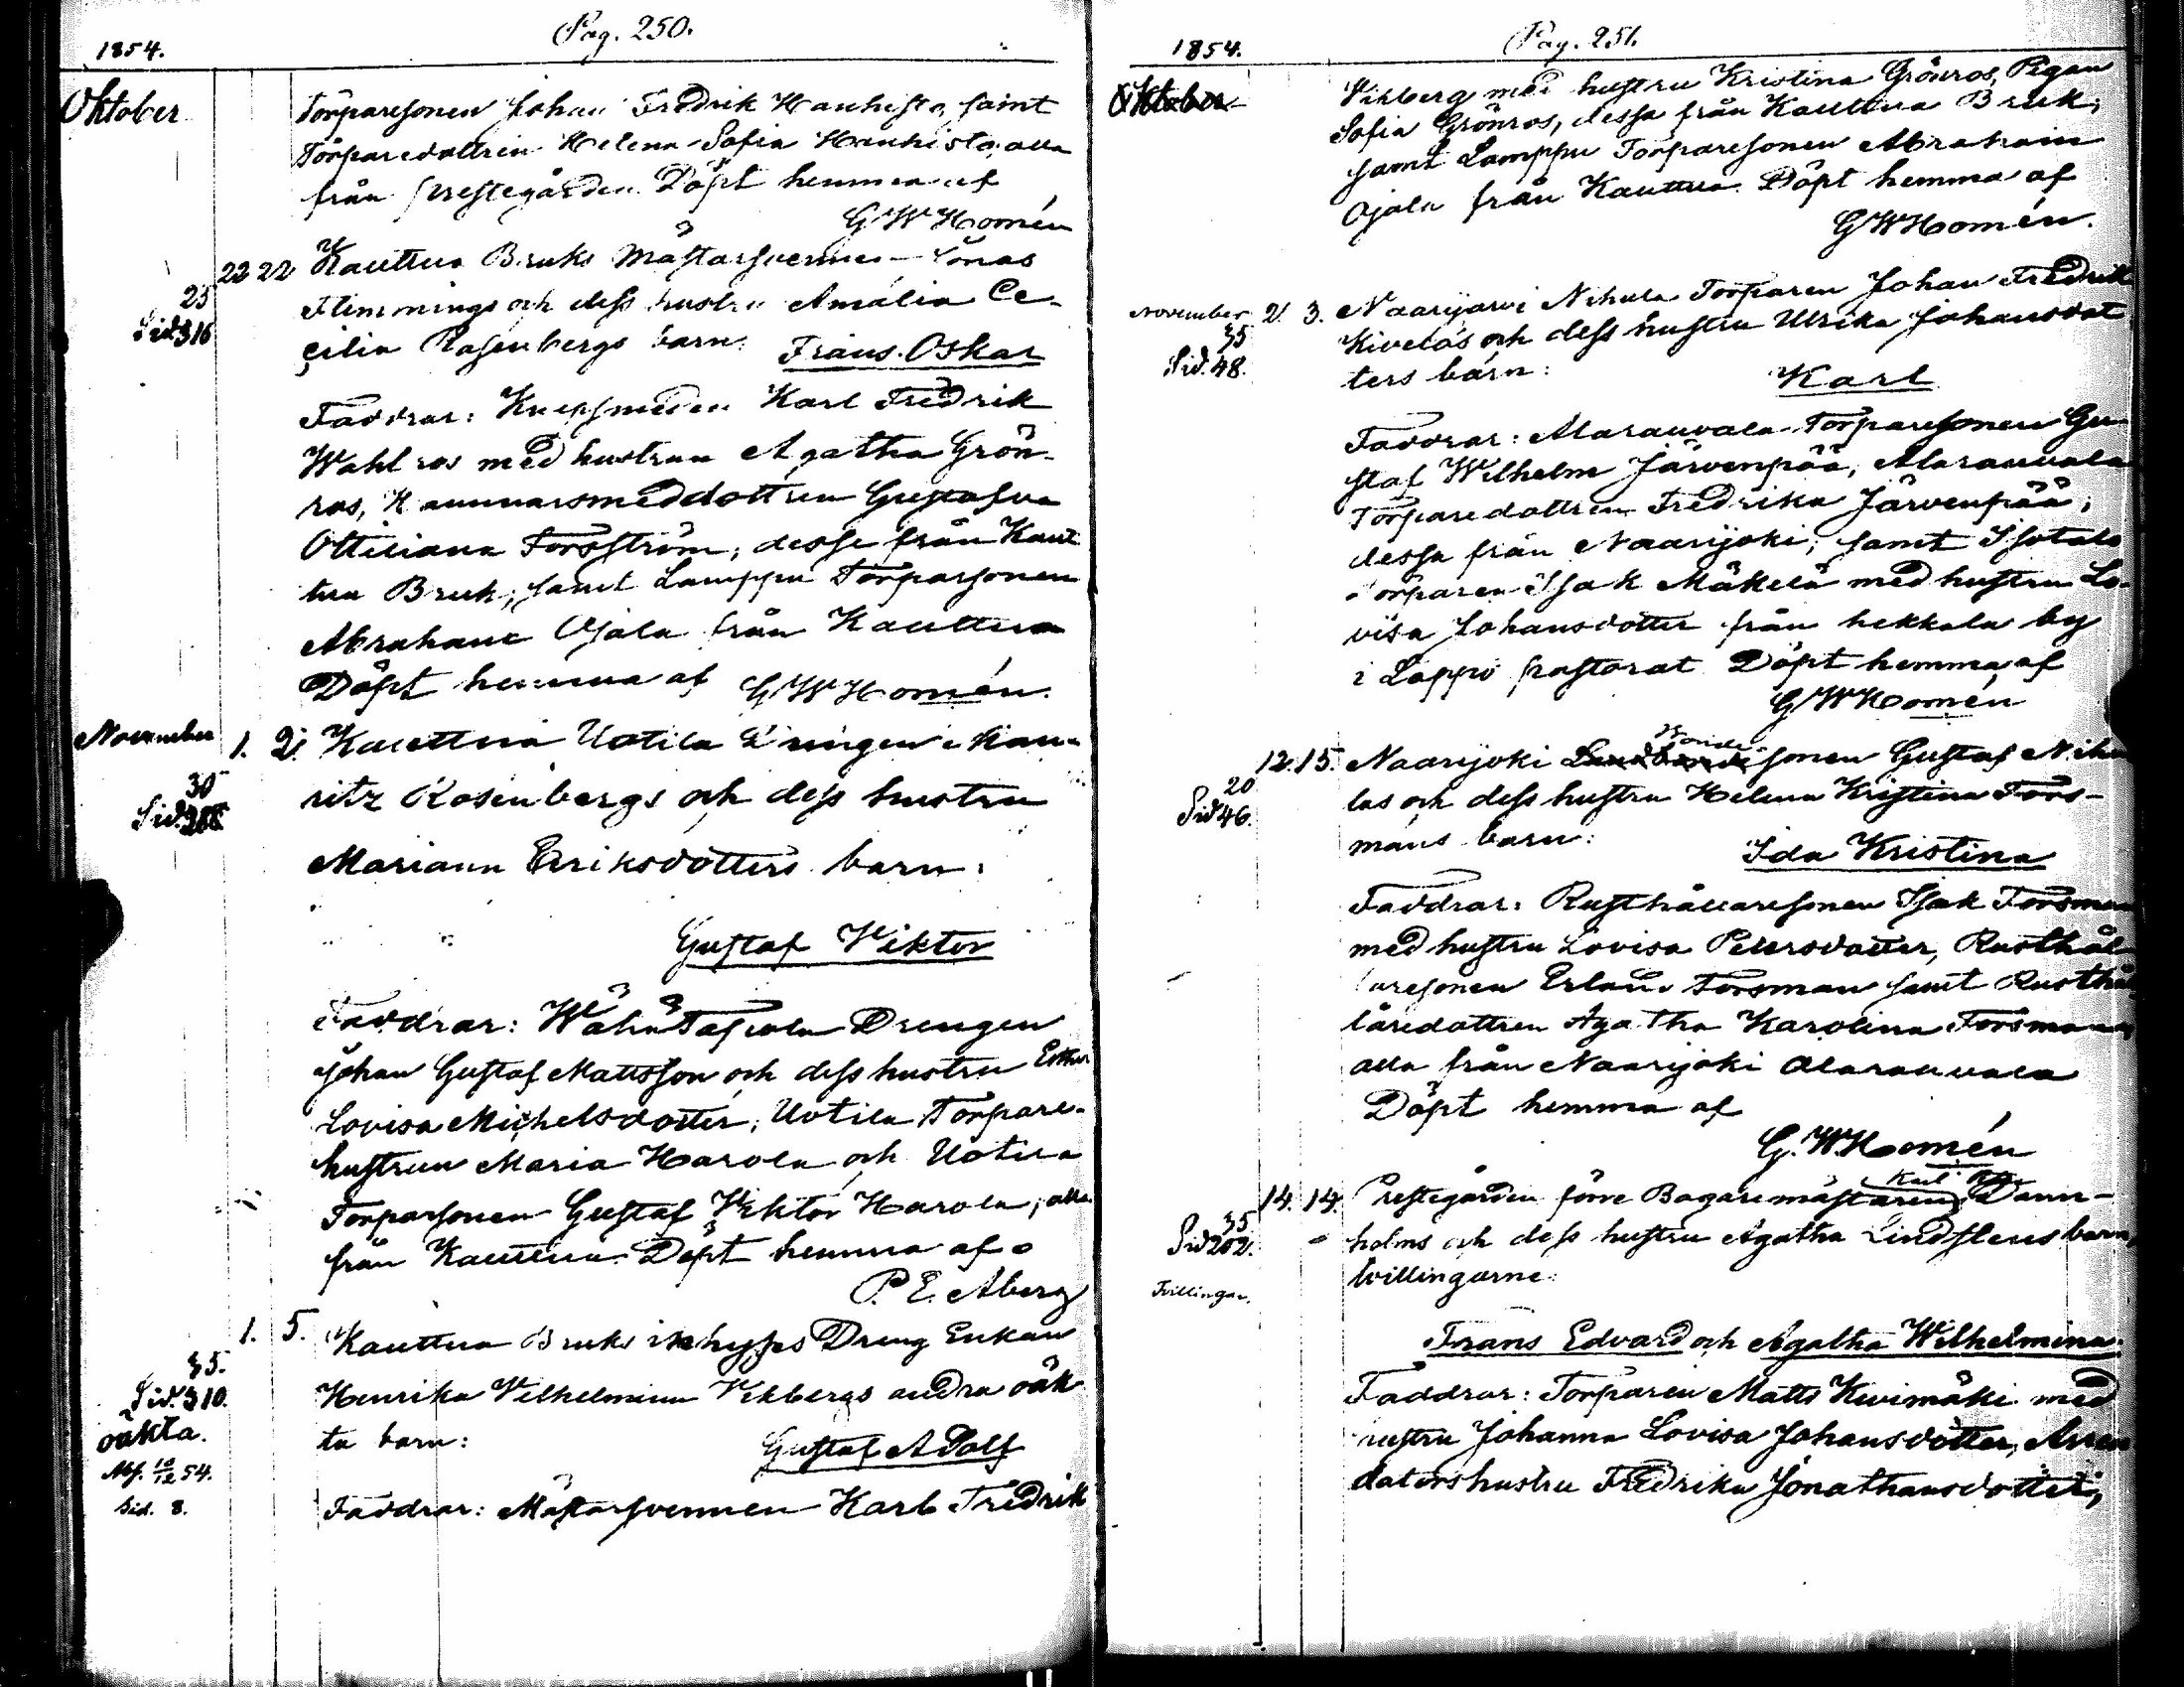 Pag. 250.
1854.
Oktober
Torparesonen Johan Fredrik Hanhisto, samt
Torparedottren Helena Sofia Hanhisto, alla
från prestegården. Döpt hemma af
G W Homén
22 22 Kauttua Bruks Mästarsvennen Jonas
25
Sid. 316
Flemmings och dess hustru Amalia Ce-
cilia Rosenbergs barn: Frans Oskar
Faddrar: Knipsmeden Karl Fredrik
Wahlros med hustrun Agatha Grön-
ros, Hammarsmeddottren Gustafva
Ottiliana Forsström, desse från Kaut
tua Bruk; samt Lamppu Torparsonen
Abraham Ojala från Kauttua
Döpt hemma af G W Homén.
November 1. 2. Kauttua Uotila Drängen Mau-
30
Sid.
ritz Rosenbergs och dess hustru
Mariana Eriksdotters barn:
Gustaf Viktor
Faddrar: Wähä Tafvola Drengen
Johan Gustaf Mattsson och dess hustru Esther
Lovisa Michelsdotter, Uotila Torpare-
hustrun Maria Harola och Uotila
Torparsonen Gustaf Viktor Harola, alla
från Kauttua. Döpt hemma af
P. E. Aberg
1. 5. Kauttua Bruks inhyses Dreng Enkan
35.
Sid. 310.
oäkta.
Abs. 10/12 54.
Sid. 8.
Henrika Vilhelmina Vikbergs andra oäk
ta barn: Gustaf Adolf
Faddrar: Mästarsvennen Karl Fredrik
Pag. 251.
1854.
Oktober
Vikberg med hustru Kristina Grönros, Pigan
Sofia Grönros, dessa från Kauttua Bruk;
samt Lamppu Torparesonen Abraham
Ojala från Kauttua. Döpt hemma af
G W Homén.
November 2. 3. Naarijarvi Nihula Torparen Johan Fredrik
35
Sid. 48.
Kiveläs och dess hustru Ulrika Johansdot
ters barn: Karl
Faddrar: Alarauvala Torparesonen Gu-
staf Wilhelm Järvenpää, Alarauvala
Torparedottren Fredrika Järvenpää;
dessa från Naarijoki; samt Isotalo
Torparen Isak Mäkelä med hustru Lo-
visa Johansdotter från hekkala by
i Lappo pastorat. Döpt hemma af
G W Homén
12. 15. Naarijoki Landbonde Bonde sonen Gustaf Nihu
20
Sid 46.
las och dess hustru Helena Kristina Fors-
mans barn: Ida Kristina
Faddrar: Rusthållaresonen Isak Forsman
med hustru Lovisa Petersdotter, Rusthål
laresonen Erland Forsman samt Rusthål
laredottren Agatha Karolina Forsman,
alla från Naarijoki Alarauvala
Döpt hemma af
G. W. Homén
14. 14. Prestegården förre Bagaremästaren Dann-
35
Sid 202.
holms och dess hustru Agatha Lindstens barn,
Tvillingar.
tvillingarne:
Frans Edvard och Agatha Wilhelmina.
Faddrar: Torparen Matts Kivimäki med
hustru Johanna Lovisa Johansdotter, Arren
datorshustru Fredrika Jonathansdotter,